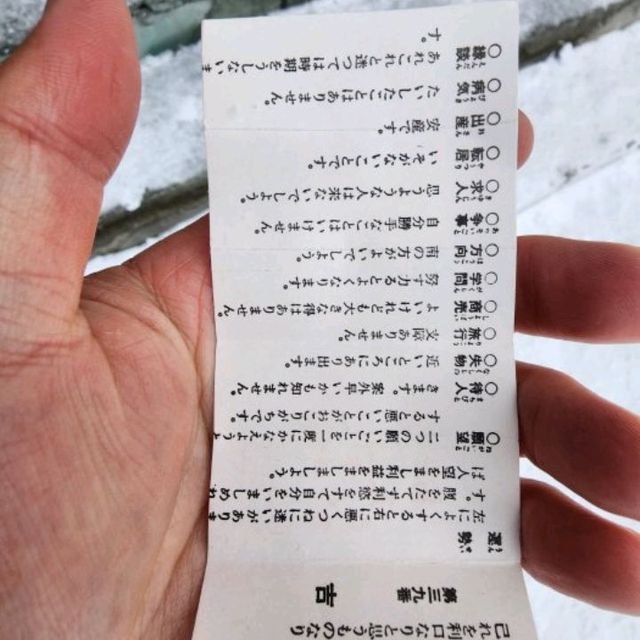 己れを利口なりと思うものなり
第三九番 吉
運勢
左によくすると右に悪くつねに迷いがありま
す。腹をたてず利慾をすて自分をいましめれ
ば人望をまし利益をましましょう。
○願望 二つの願いごとを一度にかなえようと
すると悪いことがおこりがちです。
○待人 きます。案外早いかも知れません。
○失物 近いところにあり出ます。
○旅行 ありません。
○商売 よいけれども大きな得はありません。
○学問 努力するとよくなります。
○方向 南の方がよいでしょう。
○争事 自分勝手なことはいけません
○求人 思うような人は来ないでしょう。
○転居 いそがないことです。
○出産 安産です。
○病気 たいしたことはありません。
○縁談 あれこれと迷つては時期をうしないま
す。